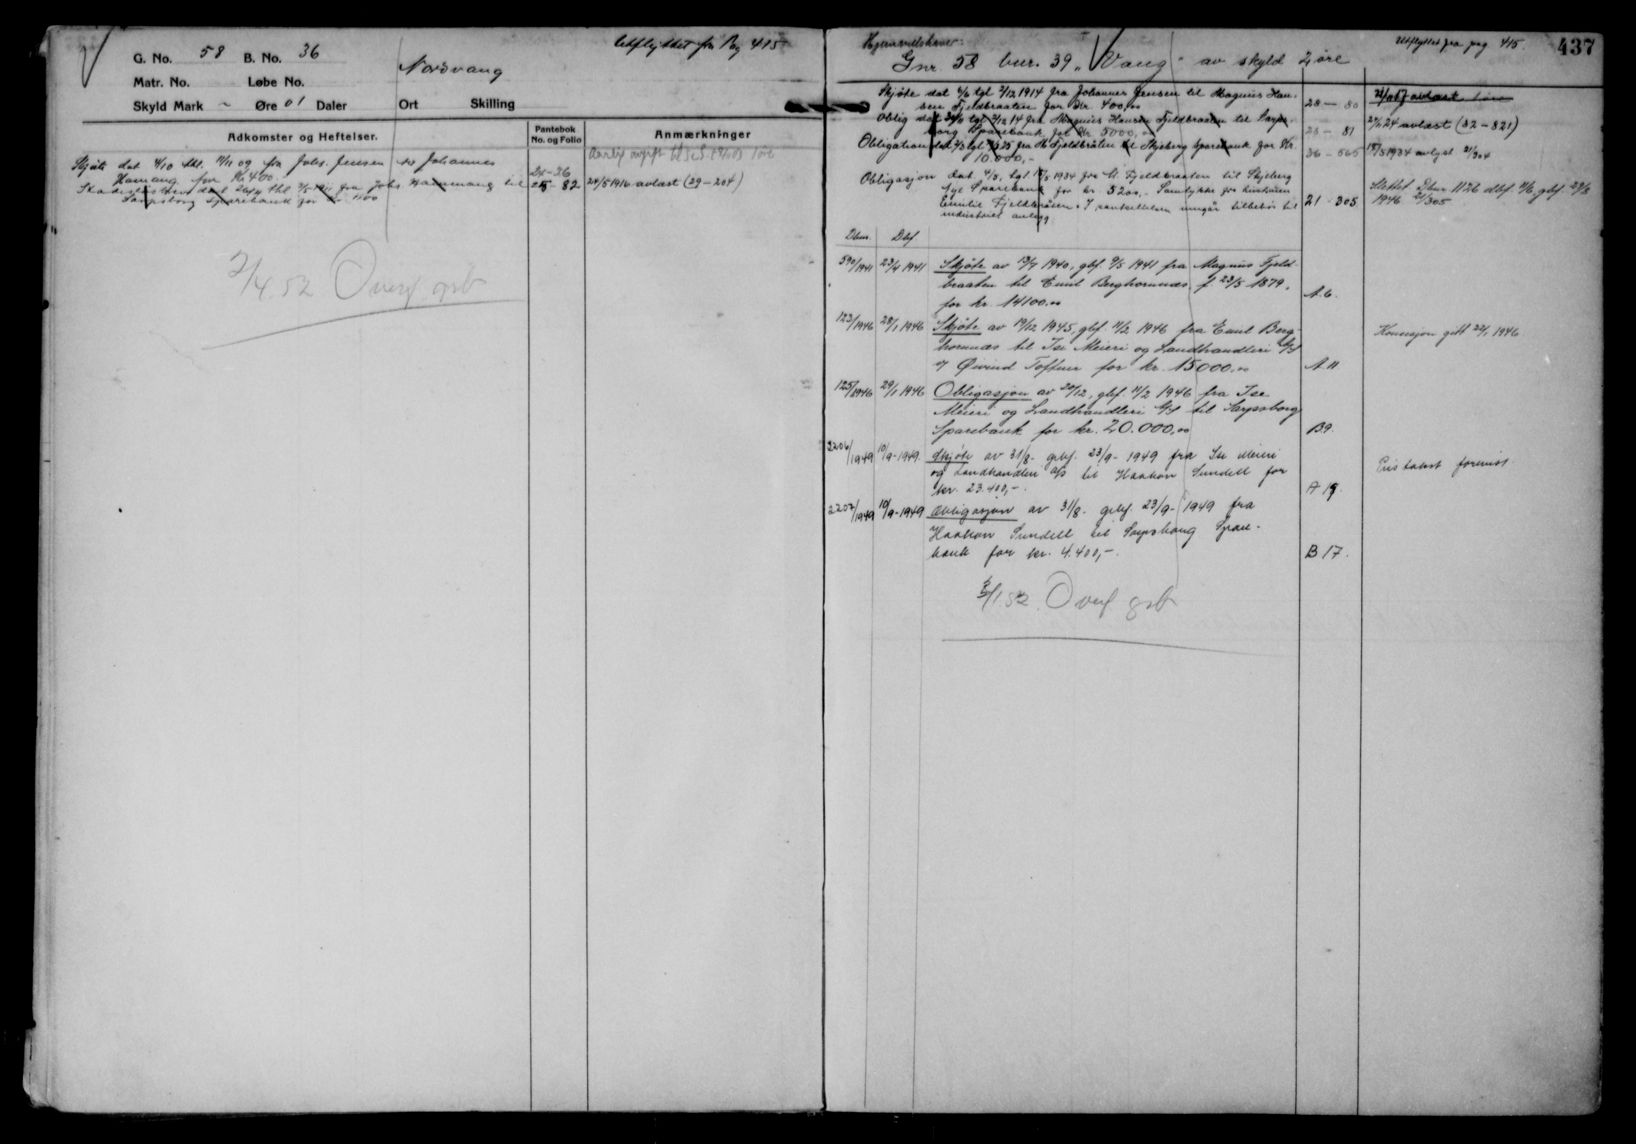 Utflyttet fra Pag 415
G. No. 58 B. No. 36
Nordvang
Matr. No. Løbe No.
Skyld Mark ~ Øre 01 Daler Ort Skilling
Adkomster og Heftelser.
Pantebok No. og Folio
Anmærkninger
Skjøte dat 4/10 tgl. 11/11 09 fra Johs. Jensen til Johannes
Hamang for Kr 400.
24-26
til Sarpsborg Sparebank for Kr. 1100
25-82
24/5 1916 avlæst (29-204)
2/4.52 Overf. grb
Hjemmelshaver:
Utflyttet fra pag 415.
437
Gnr. 58 bnr. 39 "Vang" av skyld 2 øre
Skjøte dat 4/6 tgl 2/12 1914 fra Johannes Jensen til Magnus Han-
sen Fjeldbraaten for Kr. 400,00
28-80
Oblig dat tgl 2/12 14 fra Magnus Hansen Fjeldbraaten til Sarps-
borg Sparebank for Kr. 5000,00
28-81
24 avlæst (32-821)
Obligation fra M. Fjeldbråten til Skjeberg Sparebank for Kr.
10.000,-
36-565
15/5 1934 avlyst 21/304
Obligasjon dat. 9/5. tgl 15/5 1934 fra M. Fjeldbraaten til Skjeberg
Nye Sparebank for kr. 5200,- Samtykke fra hustruen
Emilie Fjeldbråten. I pantsettelsen inngår tilbehør til
industrielt anlegg
21-305
Slettet Dbnr 1126 dbf 4/6, gbf. 29/8
1946 21/305
Dbnr. Dbf
590/1941 23/4 1941 Skjøte av 19/7 1940, gbf. 9/5 1941 fra Magnus Fjeld-
braaten til Emil Berghornnæs f. 23/5 1879,
for kr. 14100.00
A.6.
123/1946 28/1 1946 Skjøte av 19/12 1945, gbf. 11/2 1946 fra Emil Berg-
hornnæs til Ise Meieri og Landhandleri A/S
v/ Øivind Toftner for kr. 15000,00
A 11
Konsesjon gitt 22/1 1946
125/1946 29/1 1946 Obligasjon av 20/12, gbf. 11/2 1946 fra Ise
Meieri og Landhandleri A/S til Sarpsborg
Sparebank for kr. 20.000,00
B 9.
2206/1949 10/9-1949. Skjøte av 31/8- gbf. 23/9- 1949 fra Ise Meieri
og Landhandleri A/S til Haakon Sundell for
kr. 23.400,-.
A 19.
Pris takst forevist
2207/1949 10/9-1949 Obligasjon av 31/8- gbf. 23/9- 1949 fra
Haakon Sundell til Sarpsborg Spare-
bank for kr. 4.400,-.
B 17.
Overf grb